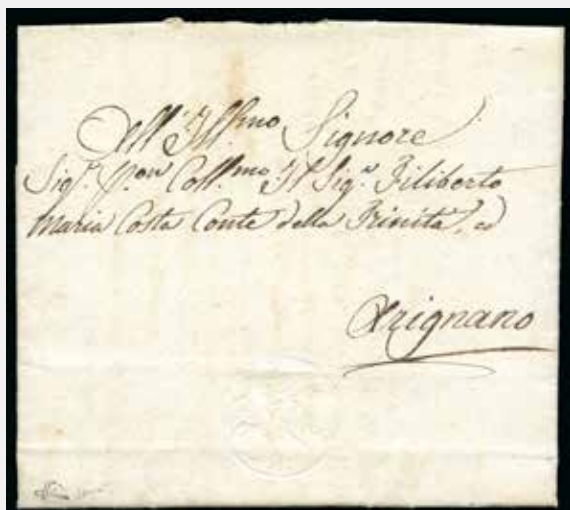 All'Ill.mo Signore
Sig.r P.on Coll.mo Il Sig.r Filiberto
Maria Costa Conte della Trinità, ed
Arignano